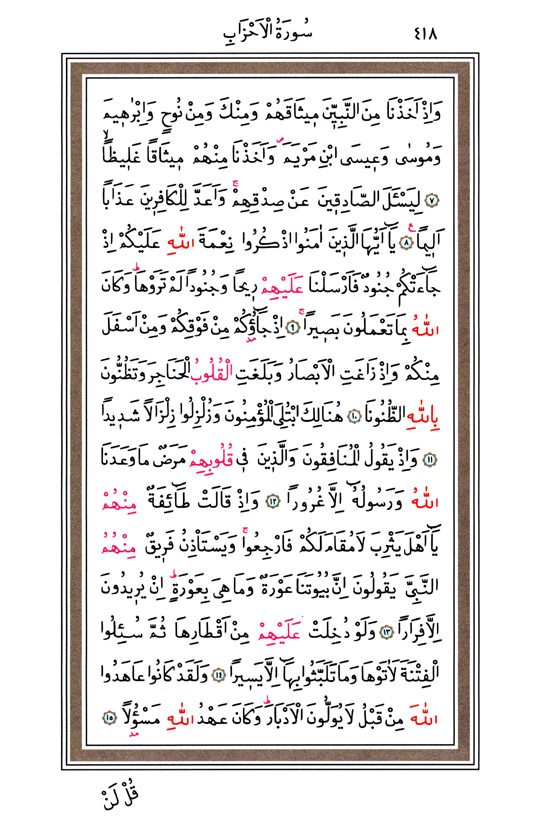 ٤١٨ سُورَةُ الْاَحْزَابِ
وَاِذْ اَخَذْنَا مِنَ النَّبِيّ۪نَ م۪يثَاقَهُمْ وَمِنْكَ وَمِنْ نُوحٍ وَاِبْرٰه۪يمَ
وَمُوسٰى وَع۪يسَى ابْنِ مَرْيَمَۖ وَاَخَذْنَا مِنْهُمْ م۪يثَاقًا غَل۪يظًاۙ
﴿٧﴾ لِيَسْـَٔلَ الصَّادِق۪ينَ عَنْ صِدْقِهِمْۚ وَاَعَدَّ لِلْكَافِر۪ينَ عَذَابًا
اَل۪يمًا۟ ﴿٨﴾ يَٓا اَيُّهَا الَّذ۪ينَ اٰمَنُوا اذْكُرُوا نِعْمَةَ اللّٰهِ عَلَيْكُمْ اِذْ
جَٓاءَتْكُمْ جُنُودٌ فَاَرْسَلْنَا عَلَيْهِمْ ر۪يحًا وَجُنُودًا لَمْ تَرَوْهَاۜ وَكَانَ
اللّٰهُ بِمَا تَعْمَلُونَ بَص۪يرًاۚ ﴿٩﴾ اِذْ جَٓاؤُ۫كُمْ مِنْ فَوْقِكُمْ وَمِنْ اَسْفَلَ
مِنْكُمْ وَاِذْ زَاغَتِ الْاَبْصَارُ وَبَلَغَتِ الْقُلُوبُ الْحَنَاجِرَ وَتَظُنُّونَ
بِاللّٰهِ الظُّنُونَا ﴿١٠﴾ هُنَالِكَ ابْتُلِيَ الْمُؤْمِنُونَ وَزُلْزِلُوا زِلْزَالًا شَد۪يدًا
﴿١١﴾ وَاِذْ يَقُولُ الْمُنَافِقُونَ وَالَّذ۪ينَ ف۪ي قُلُوبِهِمْ مَرَضٌ مَا وَعَدَنَا
اللّٰهُ وَرَسُولُهُٓ اِلَّا غُرُورًا ﴿١٢﴾ وَاِذْ قَالَتْ طَٓائِفَةٌ مِنْهُمْ
يَٓا اَهْلَ يَثْرِبَ لَا مُقَامَ لَكُمْ فَارْجِعُواۚ وَيَسْتَاْذِنُ فَر۪يقٌ مِنْهُمُ
النَّبِيَّ يَقُولُونَ اِنَّ بُيُوتَنَا عَوْرَةٌ وَمَا هِيَ بِعَوْرَةٍۜ اِنْ يُر۪يدُونَ
اِلَّا فِرَارًا ﴿١٣﴾ وَلَوْ دُخِلَتْ عَلَيْهِمْ مِنْ اَقْطَارِهَا ثُمَّ سُئِلُوا
الْفِتْنَةَ لَاٰتَوْهَا وَمَا تَلَبَّثُوا بِهَٓا اِلَّا يَس۪يرًا ﴿١٤﴾ وَلَقَدْ كَانُوا عَاهَدُوا
اللّٰهَ مِنْ قَبْلُ لَا يُوَلُّونَ الْاَدْبَارَۜ وَكَانَ عَهْدُ اللّٰهِ مَسْؤُ۫لًا ﴿١٥﴾
قُلْ لَنْ